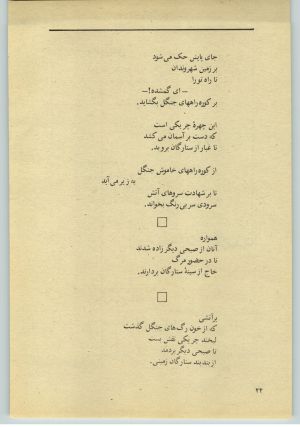 جای پایش حک می‌شود
بر زمین شهروندان
تا راه تو را
– ای گمشده! –
بر کوره راههای جنگل بگشاید.
این چهرهٔ چریکی است
که دست بر آسمان می‌کشد
تا غبار از ستارگان بروبد.
از کوره راههای خاموش جنگل
به زیر می‌آید
تا بر شهادت سروهای آتش
سرودی سربی‌رنگ بخواند.
همواره
آنان از صبحی دیگر زاده شدند
تا در حضور مرگ
خاج از سینهٔ ستارگان بردارند.
بر آتشی
که از خون رگ‌های جنگل گذشت
لبخند چریکی نقش بست
تا صبحی دیگر بردمد
از بند بند ستارگان زمینی.
۲۴